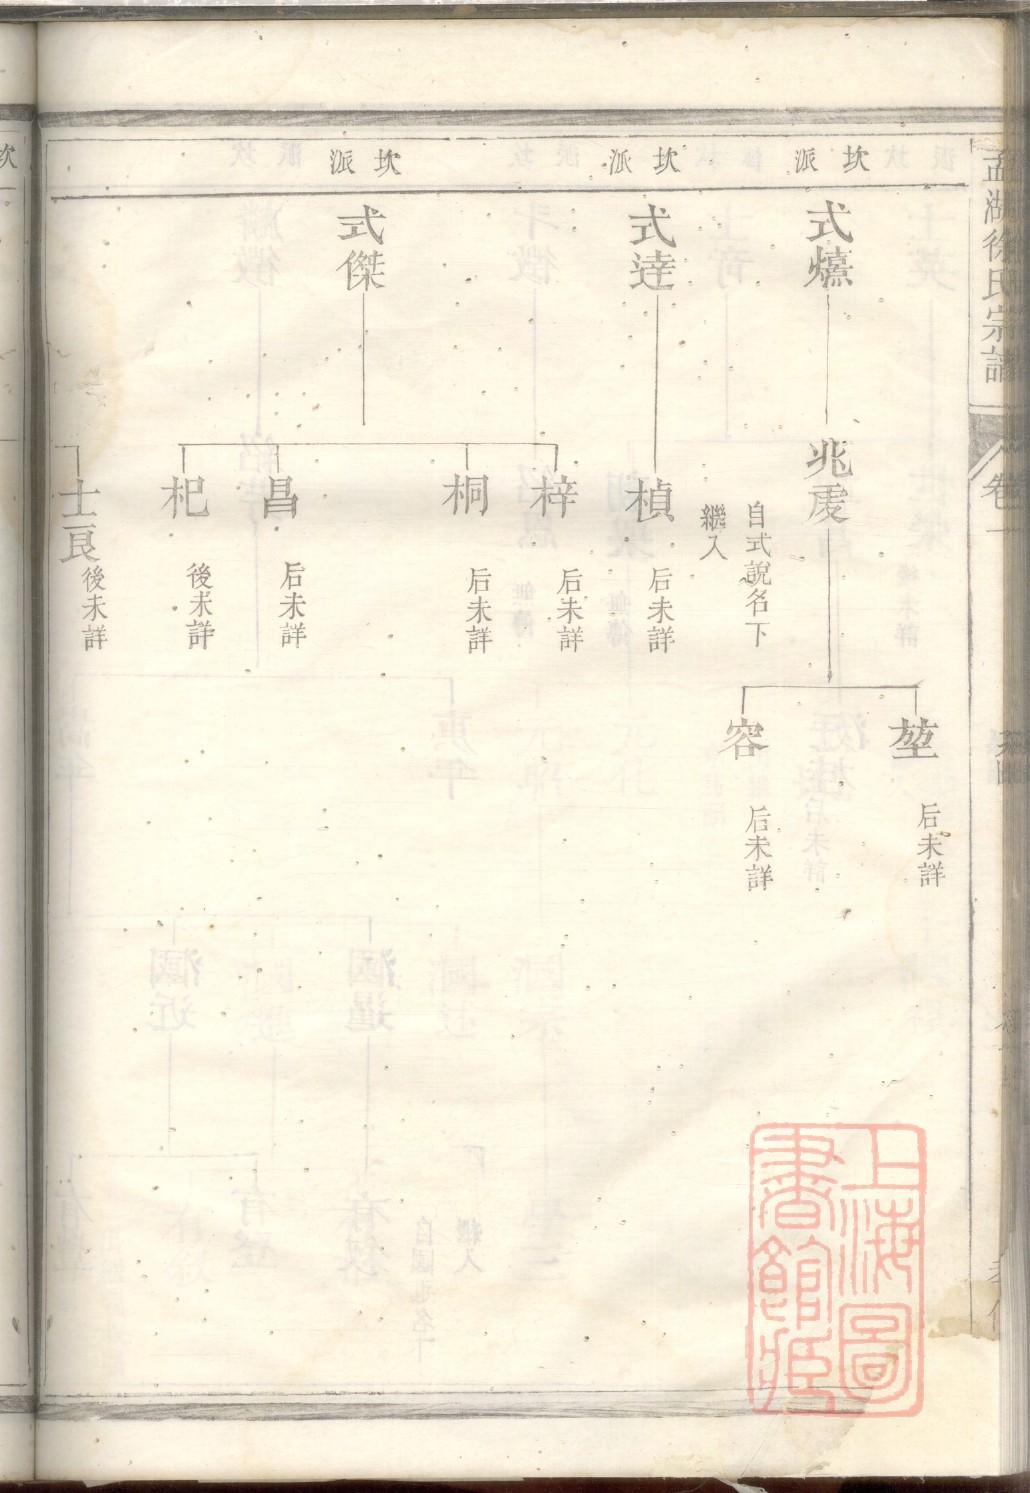 孟湖徐氏宗譜
卷一
坎派
式爔
兆虔
自式說名下
繼入
堃
后未詳
容
后未詳
坎派
式達
楨
后未詳
坎派
式傑
梓
后未詳
桐
后未詳
昌
后未詳
杞
後未詳
士良
後未詳
上海圖
書館藏
坎